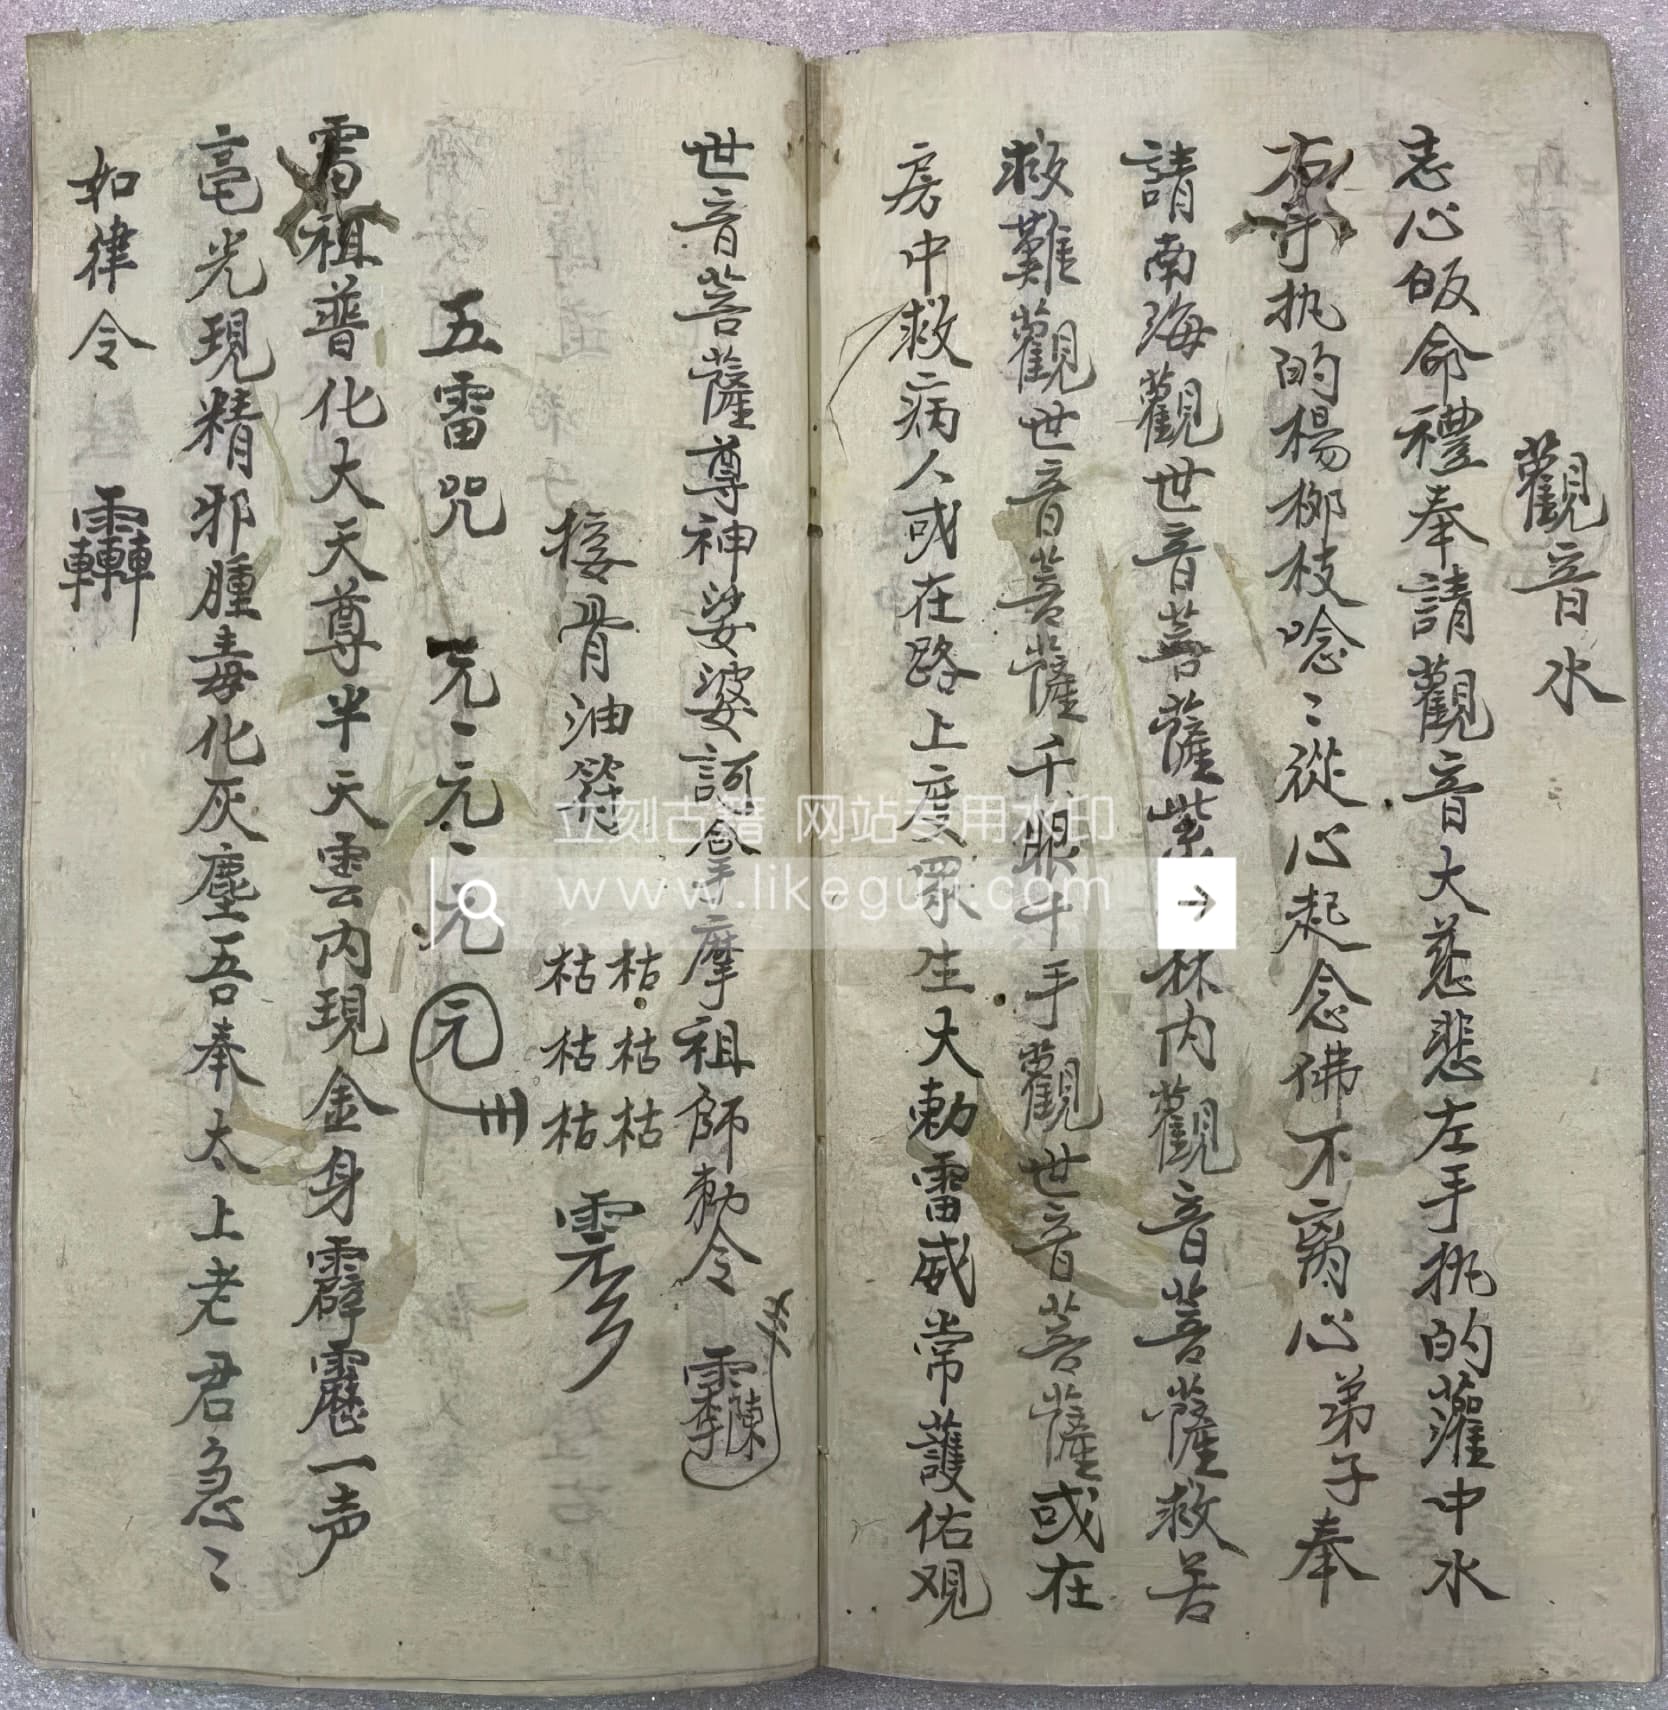 觀音水
志心皈命禮奉請觀音大慈悲左手执的灌中水
右手执的楊柳枝唸〻從心起念佛不离心弟子奉
請南海觀世音菩薩紫林内觀音菩薩救苦
救難觀世音菩薩千眼千手觀世音菩薩或在
房中救病人或在路上度眾生大勅雷威常護佑观
世音菩薩尊神娑婆訶拿摩祖師勅令
接骨油符 枯枯枯枯枯枯
五雷咒 元〻元〻元元
雷祖普化大天尊半天雲内現金身霹靂一声
亳光現精邪腫毒化灰塵吾奉太上老君急〻
如律令
立刻古籍 网站专用水印
www.likeguji.com